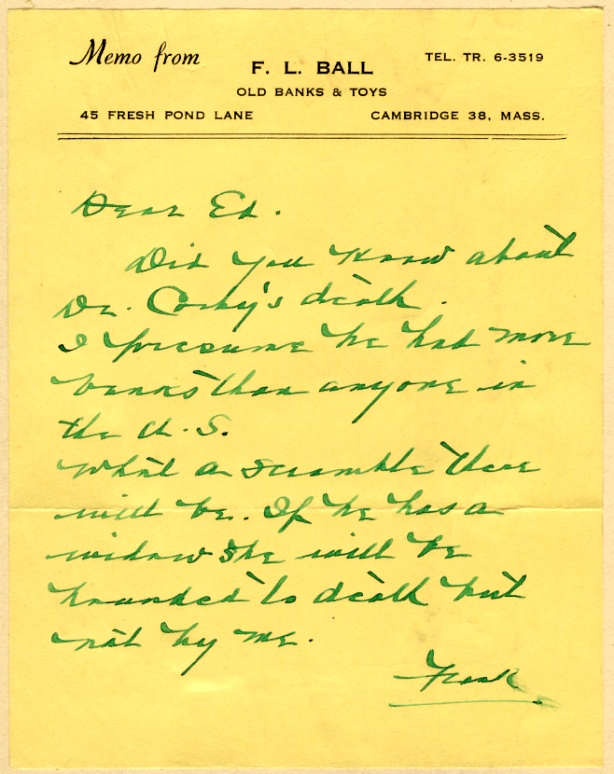 Memo from
F. L. BALL
TEL. TR. 6-3519
OLD BANKS & TOYS
45 FRESH POND LANE
CAMBRIDGE 38, MASS.
Dear Ed.
Did you know about
Dr. Corby's death.
I presume he had more
banks than anyone in
the U.S.
What a scramble there
will be. If he has a
widow she will be
hounded to death but
not by me.
Frank